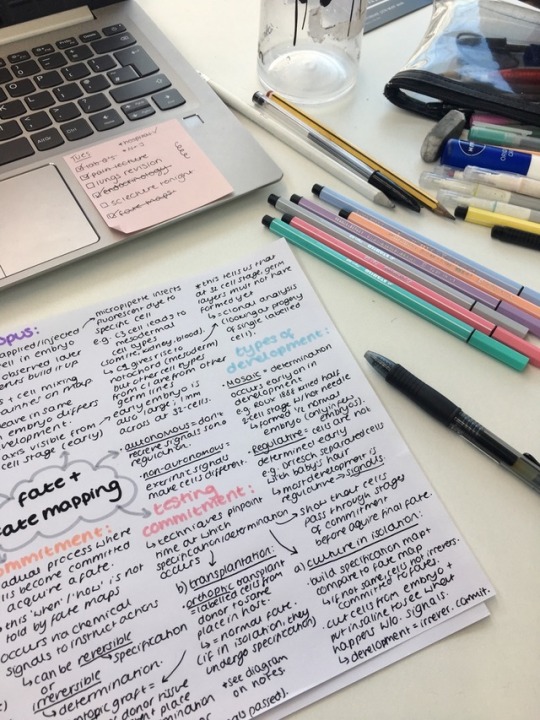 TUES
lab q's
pain lecture
lungs revision
endocrinology
sc lecture tonight
fate maps
opus:
applied/injected
cell in embryo
observed later
build it up
+ cell mixing
on map.
leave in same
embryo differs
development:
axis visible from
cell stage (early)
micropipette injects
fluorescent dye to
specific cell
e.g. C3 cell leads to
mesodermal
cell types
(somite, kidney, blood).
↳ C9 gives rise to
notochord (mesoderm)
but other cell lines
from C1 are from other
germ lines
early embryo is
also large: 1mm
across at 32-cells.
*this tells us that
at 32 cell stage, germ
layers must not have
formed yet
↳ = clonal analysis
(looking at progeny
of single labelled
cell).
types of
development:
· MOSAIC = determination
occurs early on in
development.
e.g. Roux 1888 killed half
2 cell stage w/ hot needle
↳ formed ½ normal
embryo (only in frog
embryos).
· Regulative = cells are not
determined early
e.g. Driesch separated cells
with baby's hair
↳ most development is
regulative → signals.
· autonomous = don't
receive signals for
regulation.
· non-autonomous =
extrinsic signals
make cells different.
fate +
fate mapping
commitment:
process where
cells become committed
acquire a fate.
this 'when / how' is not
told by fate maps
occurs via chemical
signals to instruct actions
↳ can be reversible → specification
or
irreversible
↳ determination.
testing
commitment:
↳ techniques pinpoint
time at which
specification/determination
occurs
↳ show that cells
pass through stages
of commitment
before acquire final fate.
b) transplantation:
· orthotopic transplant
= labelled cells from
donor to same
place in host.
↳ = normal fate.
(if in isolation, they
undergo specification)
*see diagram
on notes.
graft =
donor tissue
place
a) culture in isolation:
· build specification map +
compare to fate map
↳ if not same cells not irrevers.
committed to fates.
· cut cells from embryo +
put in saline to see what
happens w/o signals.
↳ development = irrever. commit.